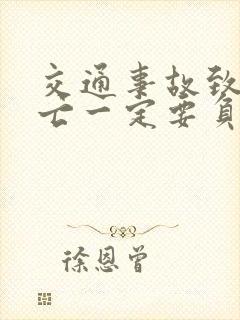 交通事故致
亡一定要负
徐恩曾